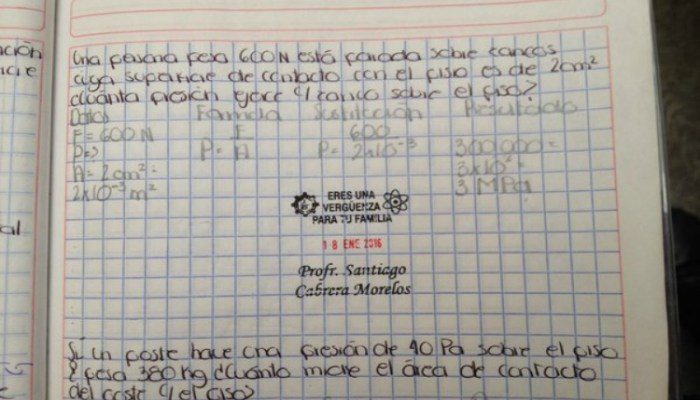 ción
cie
al
Una persona pesa 600N está parada sobre tancos
cuya superficie de contacto con el piso es de 2cm²
¿Cuánta presión ejerce c/ tanco sobre el piso?
Datos Formula Sustitución Resultado
F=600N F 600 300,000=
P=? P= A P= 2x10⁻³ 3x10
A=2cm²= 3 MPa
2x10⁻³m²
ERES UNA
VERGÜENZA
PARA TU FAMILIA
18 ENE 2016
Profr. Santiago
Cabrera Morelos
Si un poste hace una presión de 40 Pa sobre el piso
y pesa 380kg ¿Cuánto mide el área de contacto
del poste y el piso?